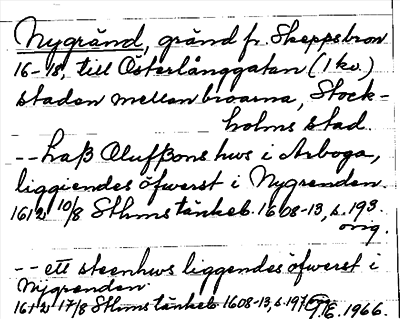 Nygränd, gränd fr. Skeppsbron
16-18, till Österlånggatan (1 kv.)
staden mellan broarna, Stock-
holms stad.
-- Laß Olufßons hws i Arboga,
liggiendes öfwerst i Nygrenden.
1612 10/8 Sthms tänkeb. 1608-13, s. 193.
orig.
-- ett steenhws liggendes öfwerst i
Nygrenden.
1612 17/8 Sthms tänkeb. 1608-13, s. 197
1966.